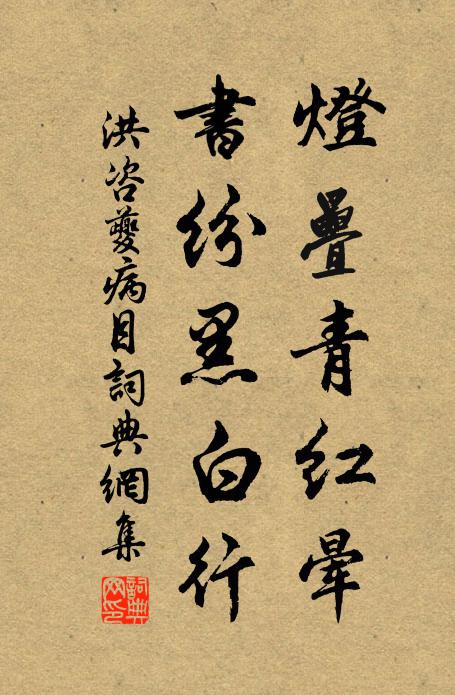 燈疊青紅暈
書紛黑白行
洪咨夔病目詞典網集
詞典網印